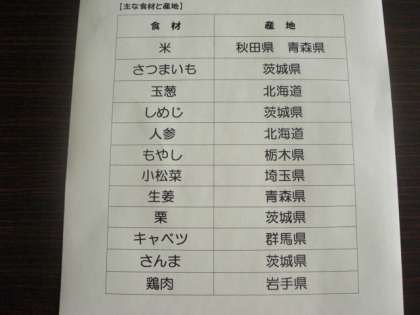 【主な食材と産地】
食材 産地
米 秋田県 青森県
さつまいも 茨城県
玉葱 北海道
しめじ 茨城県
人参 北海道
もやし 栃木県
小松菜 埼玉県
生姜 青森県
栗 茨城県
キャベツ 群馬県
さんま 茨城県
鶏肉 岩手県